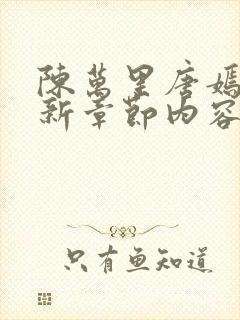 陳萬里唐嫣
新章節內容
只有魚知道